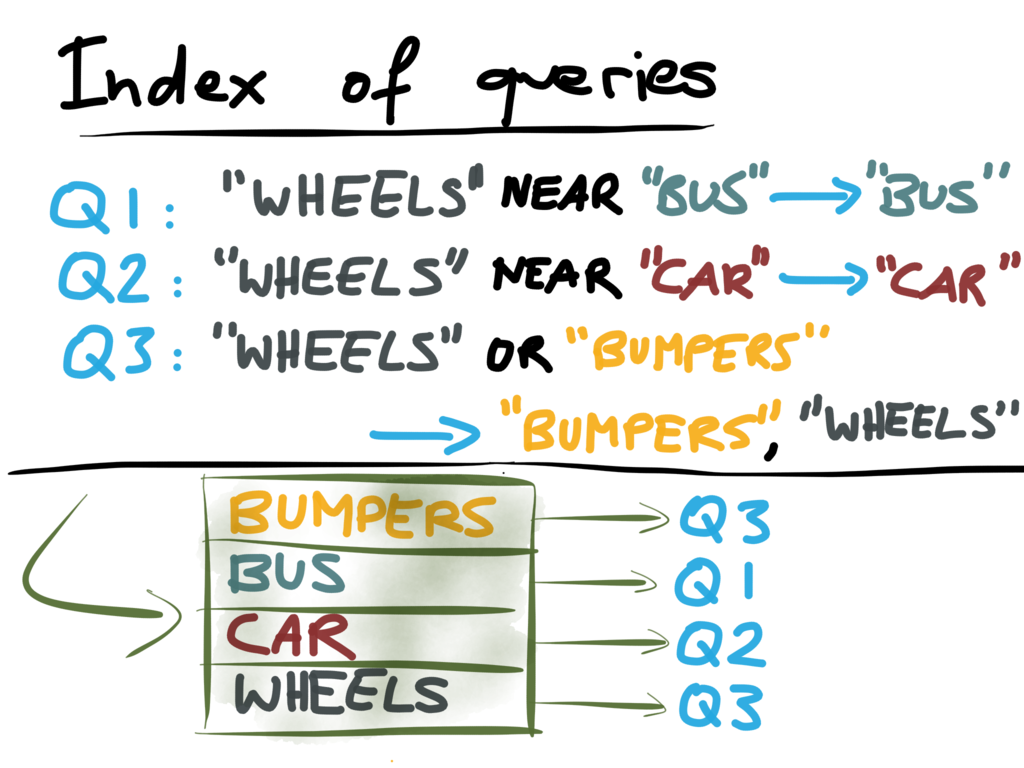 Index of queries
Q1: "WHEELS" NEAR "BUS" → "BUS"
Q2: "WHEELS" NEAR "CAR" → "CAR"
Q3: "WHEELS" OR "BUMPERS"
→ "BUMPERS", "WHEELS"
BUMPERS → Q3
BUS → Q1
CAR → Q2
WHEELS → Q3